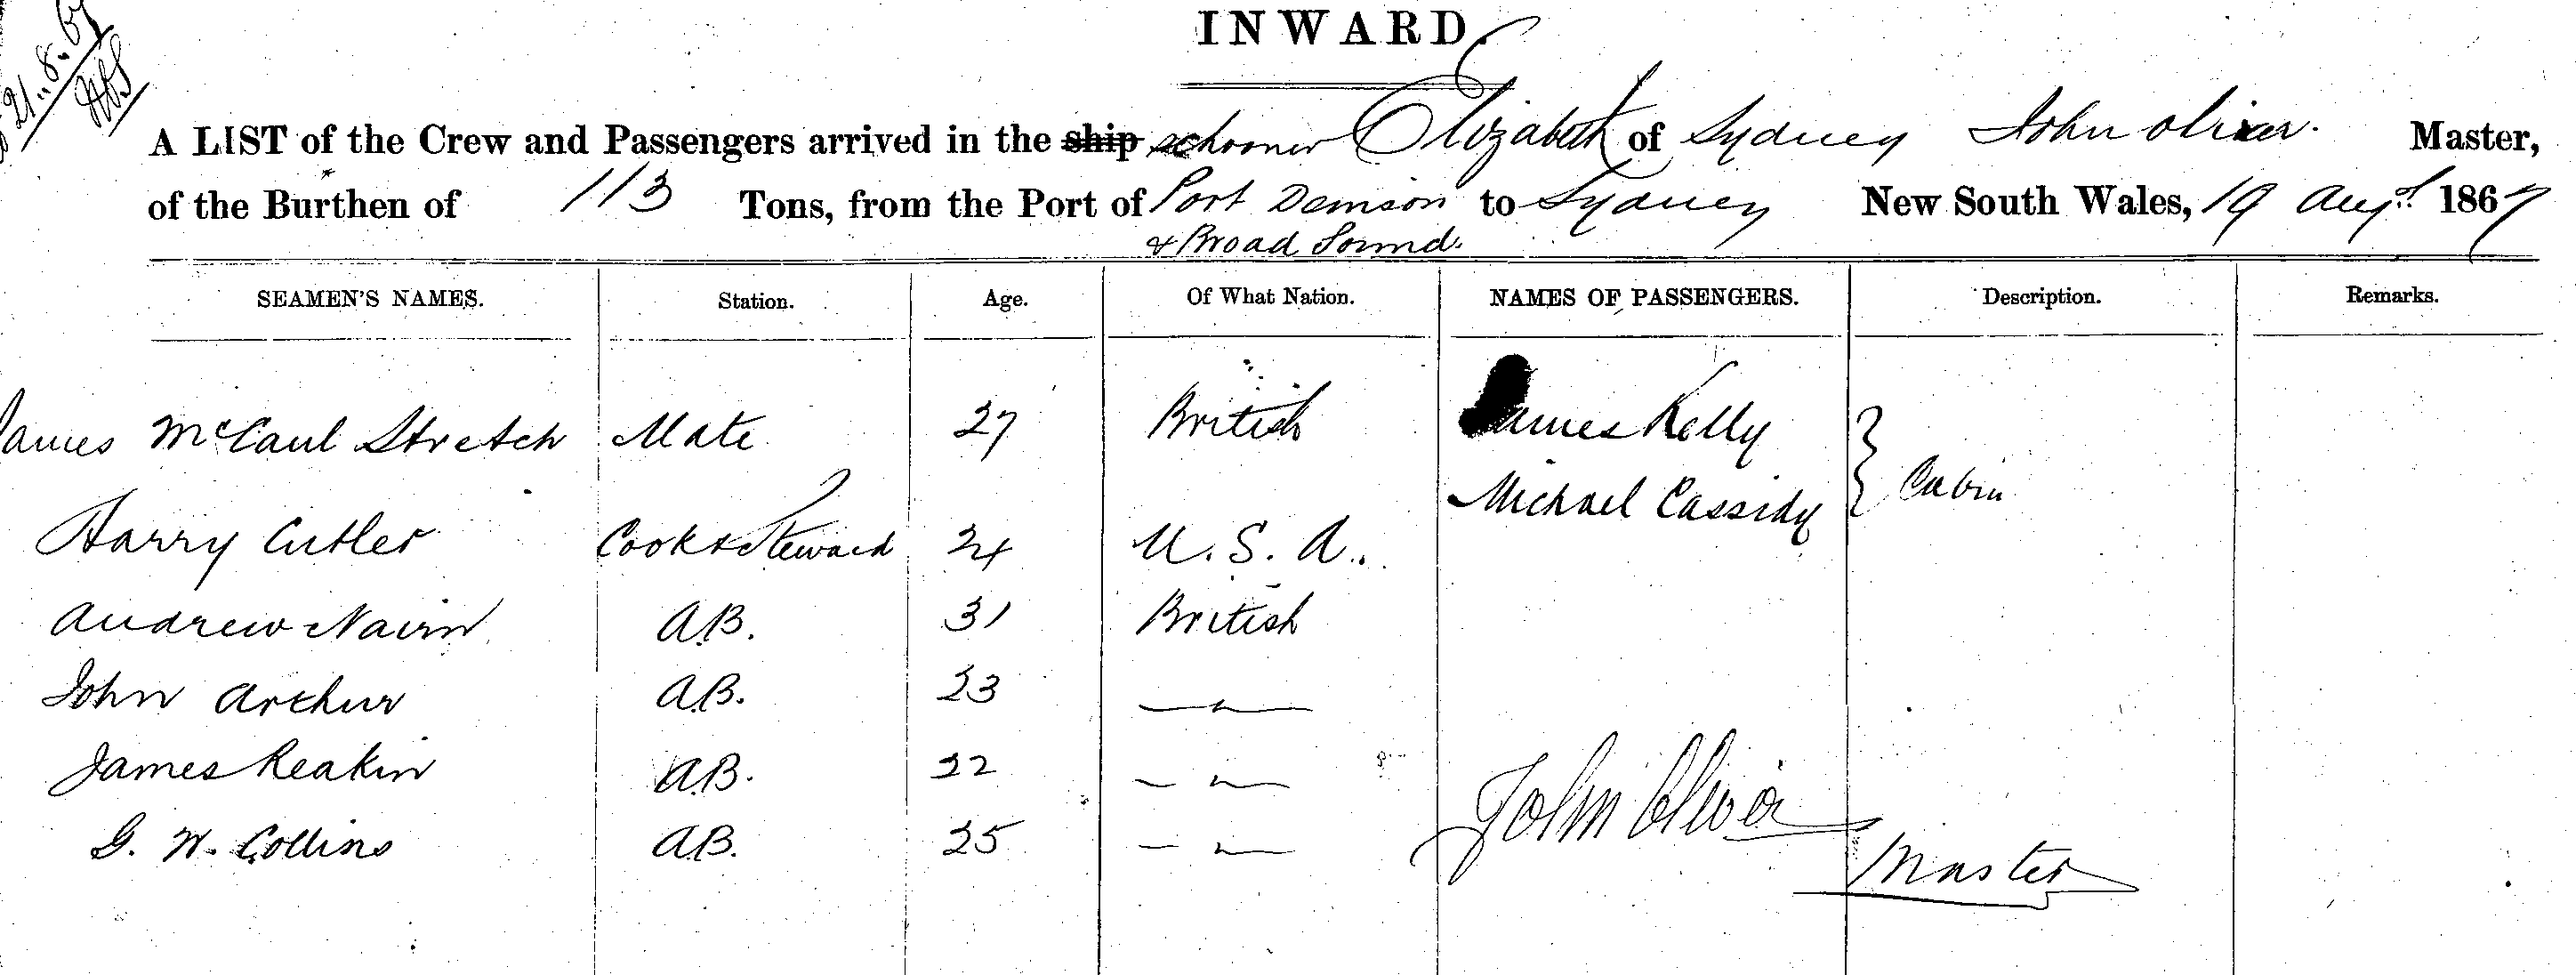 21..8.67
INWARD.
A LIST of the Crew and Passengers arrived in the ship schooner Elizabeth of Sydney John Oliver. Master,
of the Burthen of 113 Tons, from the Port of Port Denison to Sydney New South Wales, 19 Augt. 1867
& Broad Sound.
SEAMEN'S NAMES. Station. Age. Of What Nation. NAMES OF PASSENGERS. Description. Remarks.
James McCaul Stretch Mate 27 British James Kelly
Michael Cassidy } Cabin
Harry Cutler Cook & Steward 24 U.S.A..
Andrew Nairn A.B. 31 British
John Arthur A.B. 23 — " —
James Reakin A.B. 22 — " —
G. W. Collins A.B. 25 — " —
John Oliver
Master